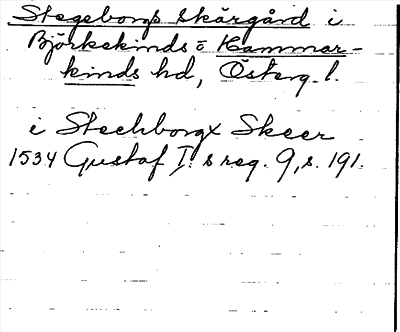 Stegeborgs skärgård i
Björkekinds o Hammar-
kinds hd, Österg. l.
i Stechborgx Skeer
1534 Gustaf I:s reg. 9, s. 191.